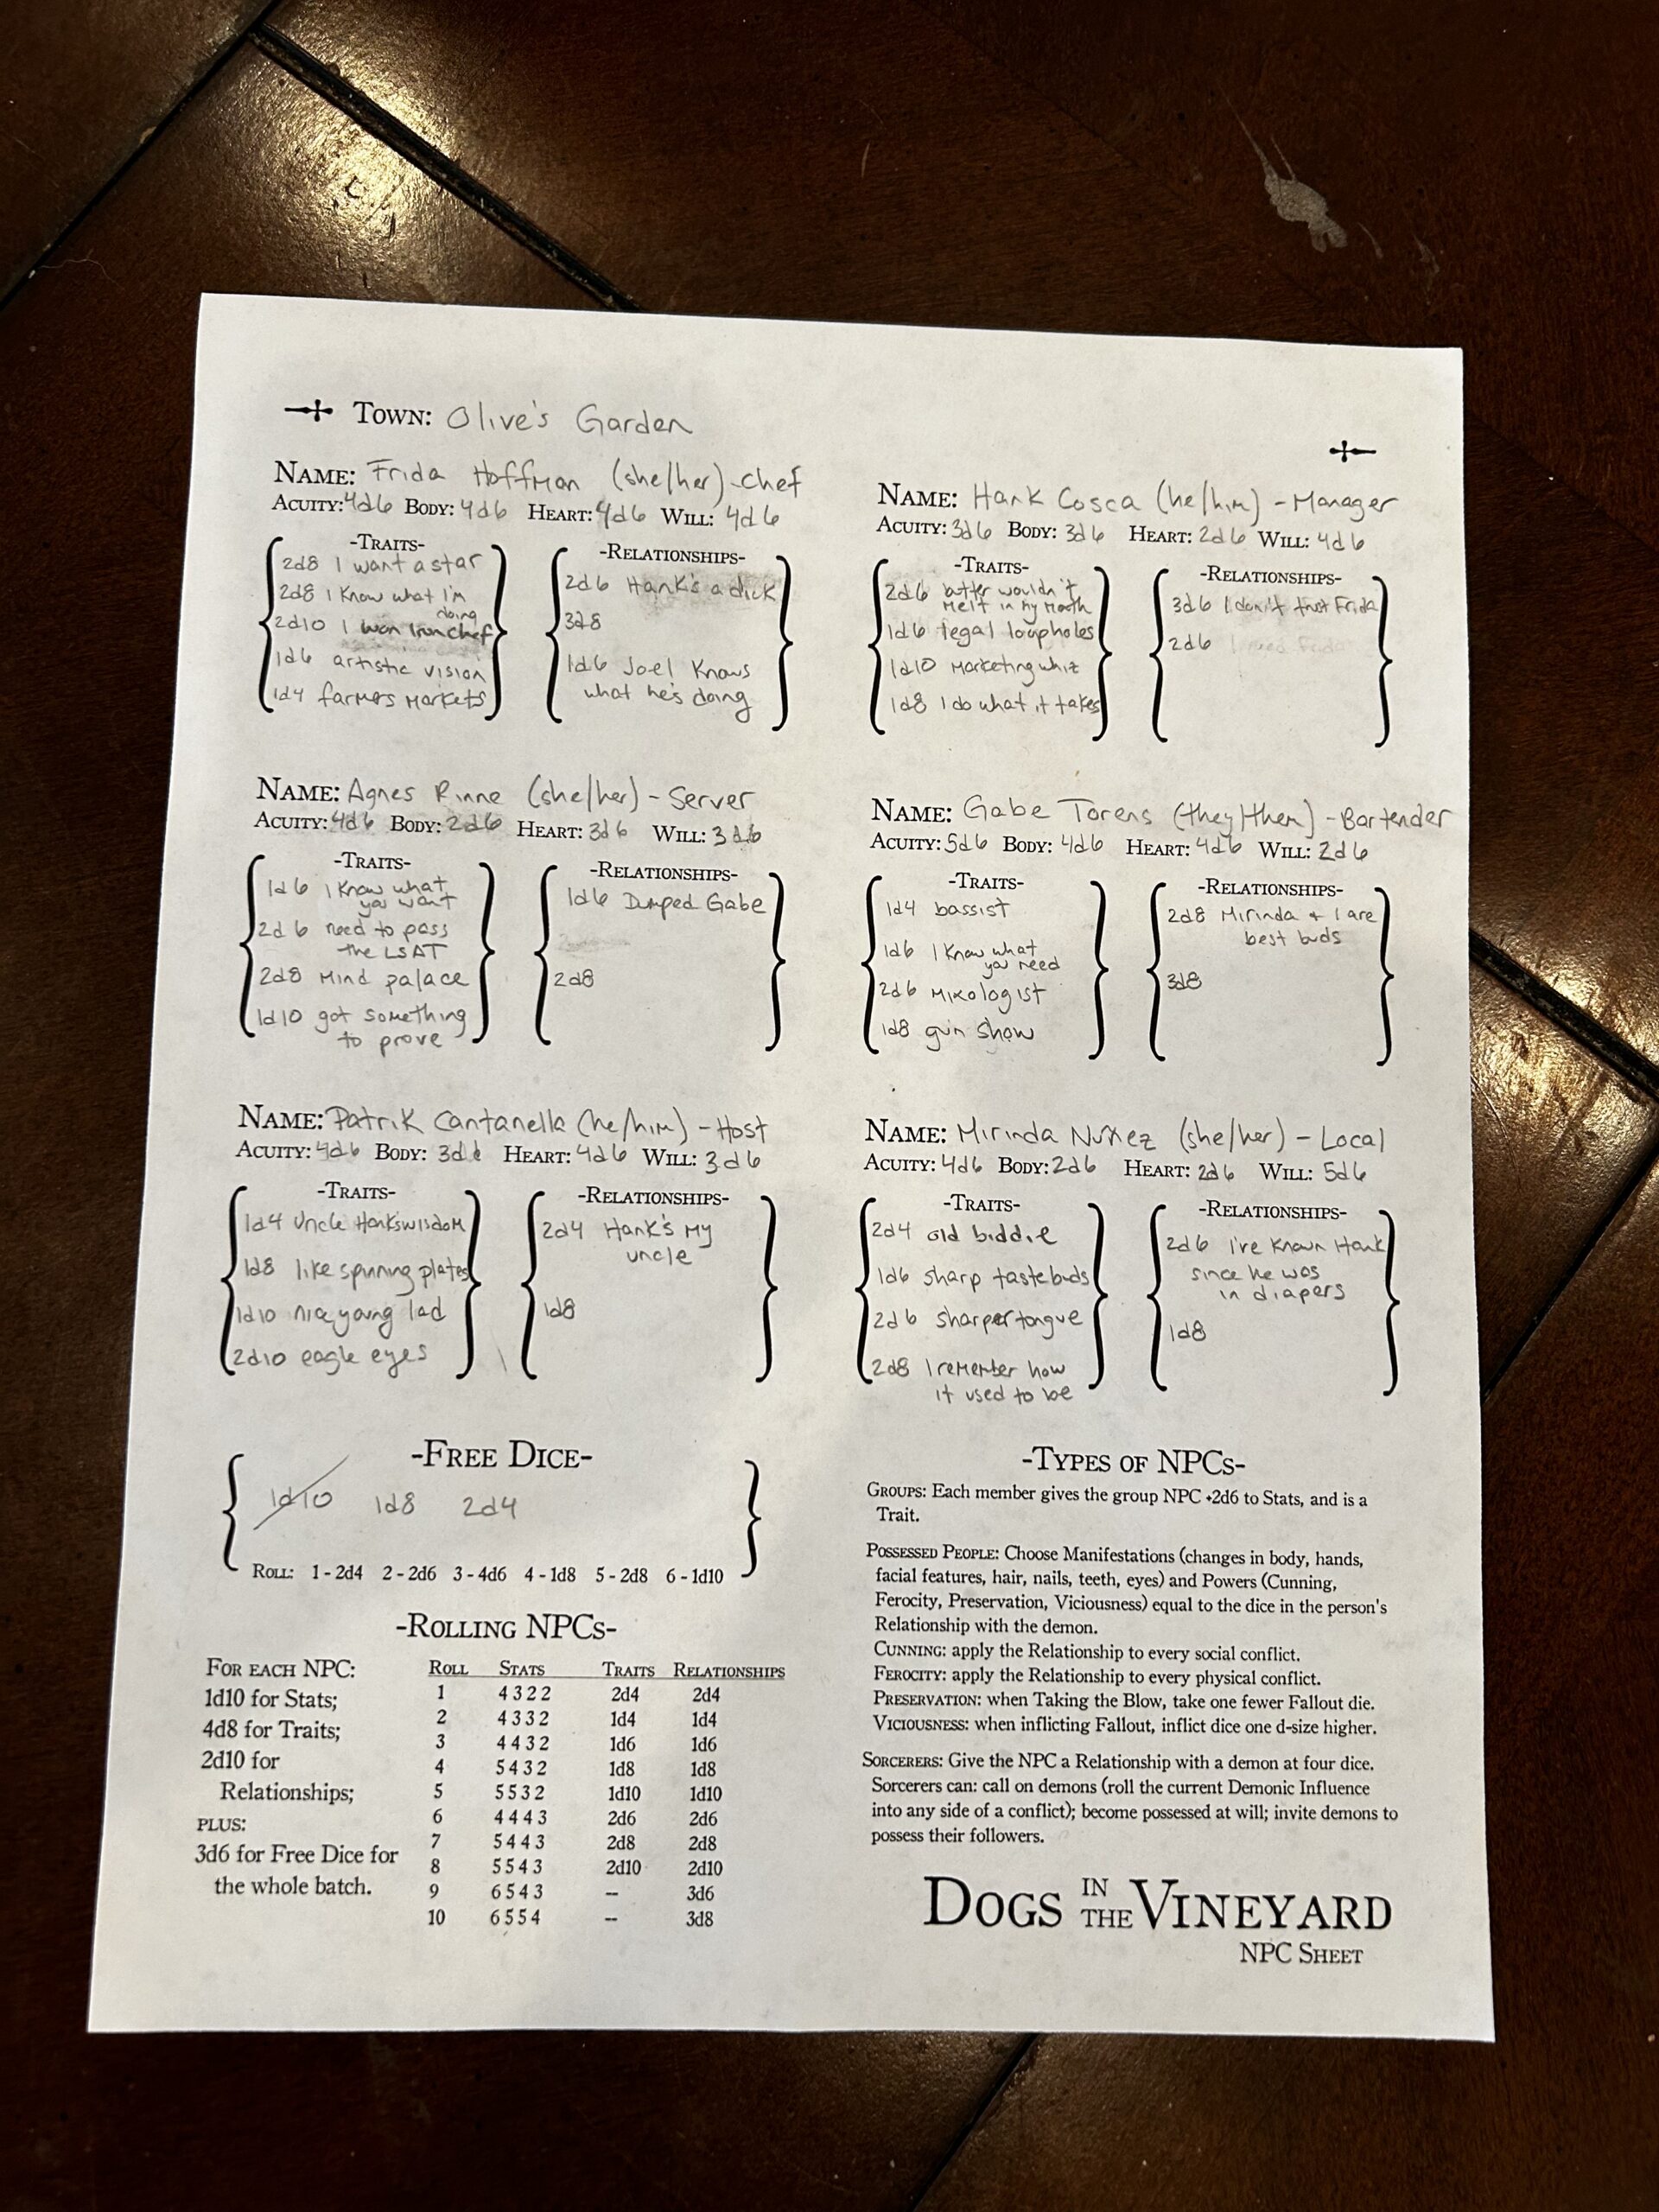 TOWN: Olive's Garden
NAME: Frida Hoffman (she/her) - Chef
ACUITY: 4d6 BODY: 4d6 HEART: 4d6 WILL: 4d6
-TRAITS-
2d8 I want a star
2d8 I know what I'm
doing
2d10 I won Iron Chef
1d6 artistic vision
1d4 farmers markets
-RELATIONSHIPS-
2d6 Hank's a dick
3d8
1d6 Joel knows
what he's doing
NAME: Hank Cosca (he/him) - Manager
ACUITY: 3d6 BODY: 3d6 HEART: 2d6 WILL: 4d6
-TRAITS-
2d6 butter wouldn't
melt in my mouth
1d6 legal loopholes
1d10 Marketing whiz
1d8 I do what it takes
-RELATIONSHIPS-
3d6 I don't trust Frida
2d6 I need Frida
NAME: Agnes Rinne (she/her) - Server
ACUITY: 4d6 BODY: 2d6 HEART: 3d6 WILL: 3d6
-TRAITS-
1d6 I know what
you want
2d6 need to pass
the LSAT
2d8 Mind palace
1d10 got something
to prove
-RELATIONSHIPS-
1d6 Dumped Gabe
2d8
NAME: Gabe Torens (they/them) - Bartender
ACUITY: 5d6 BODY: 4d6 HEART: 4d6 WILL: 2d6
-TRAITS-
1d4 bassist
1d6 I know what
you need
2d6 Mixologist
1d8 gun show
-RELATIONSHIPS-
2d8 Mirinda + I are
best buds
3d8
NAME: Patrik Cantanella (he/him) - Host
ACUITY: 4d6 BODY: 3d6 HEART: 4d6 WILL: 3d6
-TRAITS-
1d4 Uncle Hank's wisdom
1d8 like spinning plates
1d10 nice young lad
2d10 eagle eyes
-RELATIONSHIPS-
2d4 Hank's my
uncle
1d8
NAME: Mirinda Nuñez (she/her) - Local
ACUITY: 4d6 BODY: 2d6 HEART: 2d6 WILL: 5d6
-TRAITS-
2d4 old biddie
1d6 sharp tastebuds
2d6 sharper tongue
2d8 I remember how
it used to be
-RELATIONSHIPS-
2d6 I've known Hank
since he was
in diapers
1d8
-FREE DICE-
1d10 1d8 2d4
ROLL: 1 - 2d4 2 - 2d6 3 - 4d6 4 - 1d8 5 - 2d8 6 - 1d10
-ROLLING NPCS-
FOR EACH NPC:
1d10 for Stats;
4d8 for Traits;
2d10 for
Relationships;
PLUS:
3d6 for Free Dice for
the whole batch.
ROLL STATS TRAITS RELATIONSHIPS
1 4 3 2 2 2d4 2d4
2 4 3 3 2 1d4 1d4
3 4 4 3 2 1d6 1d6
4 5 4 3 2 1d8 1d8
5 5 5 3 2 1d10 1d10
6 4 4 4 3 2d6 2d6
7 5 4 4 3 2d8 2d8
8 5 5 4 3 2d10 2d10
9 6 5 4 3 -- 3d6
10 6 5 5 4 -- 3d8
-TYPES OF NPCS-
GROUPS: Each member gives the group NPC +2d6 to Stats, and is a
Trait.
POSSESSED PEOPLE: Choose Manifestations (changes in body, hands,
facial features, hair, nails, teeth, eyes) and Powers (Cunning,
Ferocity, Preservation, Viciousness) equal to the dice in the person's
Relationship with the demon.
CUNNING: apply the Relationship to every social conflict.
FEROCITY: apply the Relationship to every physical conflict.
PRESERVATION: when Taking the Blow, take one fewer Fallout die.
VICIOUSNESS: when inflicting Fallout, inflict dice one d-size higher.
SORCERERS: Give the NPC a Relationship with a demon at four dice.
Sorcerers can: call on demons (roll the current Demonic Influence
into any side of a conflict); become possessed at will; invite demons to
possess their followers.
DOGS IN THE VINEYARD
NPC SHEET